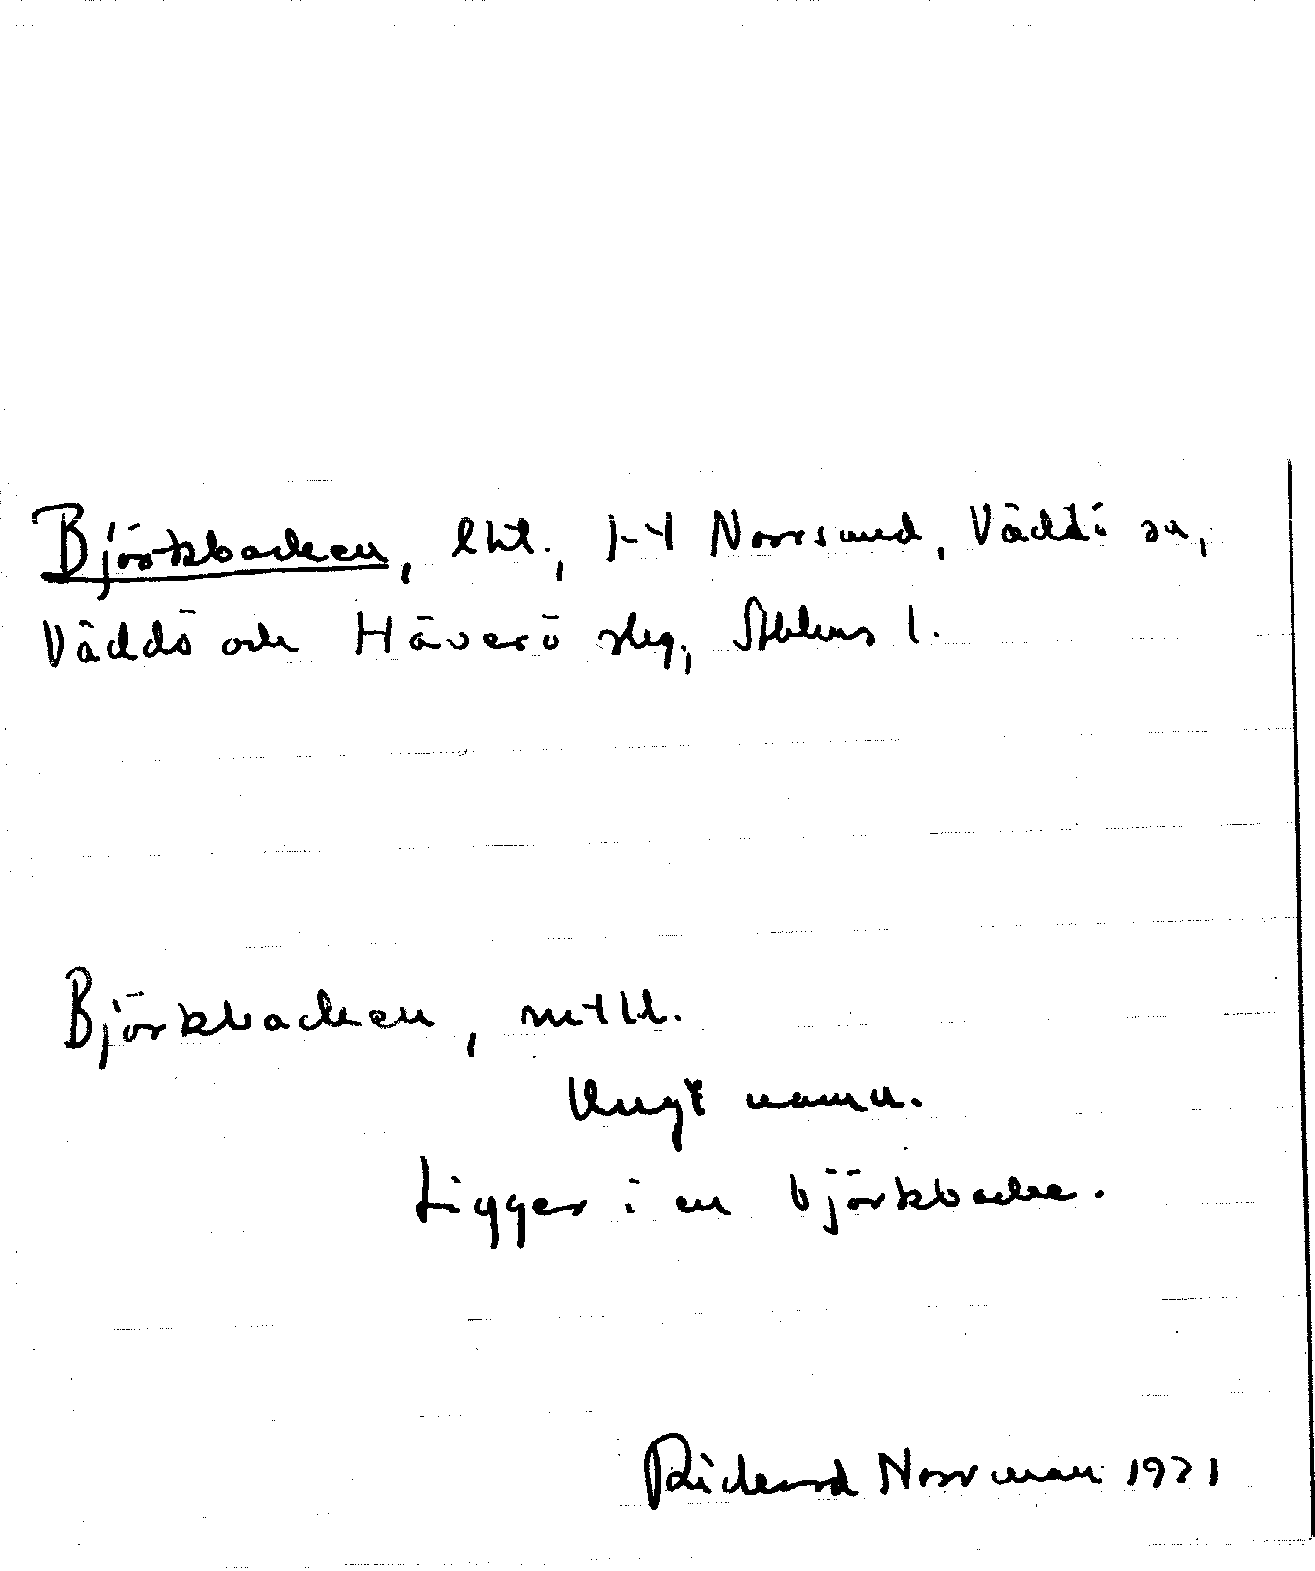 Björkbacken, lht., 1-4 Norrsund, Väddö sn,
Väddö och Häverö skg, Sthlms l.
Björkbacken, mtld.
Ungt namn.
Ligger i en björkbacke.
Rickard Norrman 1971